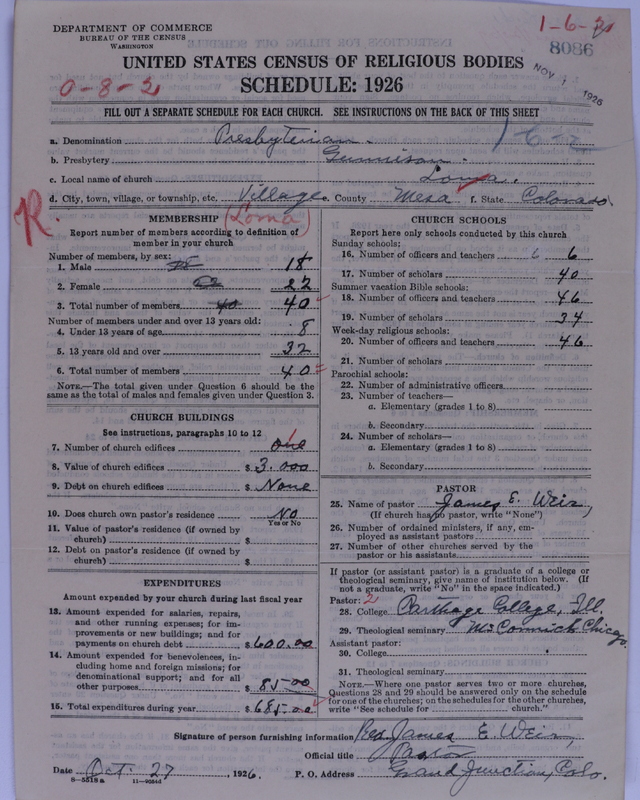 DEPARTMENT OF COMMERCE
BUREAU OF THE CENSUS
WASHINGTON
1-6-2
8086
NOV 1 1926
UNITED STATES CENSUS OF RELIGIOUS BODIES
0-8-2
SCHEDULE: 1926
FILL OUT A SEPARATE SCHEDULE FOR EACH CHURCH. SEE INSTRUCTIONS ON THE BACK OF THIS SHEET
a. Denomination Presbyterian.
b. Presbytery Gunnison.
c. Local name of church Loma.
d. City, town, village, or township, etc. Village e. County Mesa f. State Colorado.
R.
MEMBERSHIP (Loma)
Report number of members according to definition of
member in your church
Number of members, by sex:
1. Male 18 18
2. Female 22 22
3. Total number of members 40 40
Number of members under and over 13 years old:
4. Under 13 years of age 8
5. 13 years old and over 32
6. Total number of members 40
NOTE.—The total given under Question 6 should be the
same as the total of males and females given under Question 3.
CHURCH BUILDINGS
See instructions, paragraphs 10 to 12
7. Number of church edifices one 1
8. Value of church edifices $ 3.000
9. Debt on church edifices $ None
10. Does church own pastor's residence No
Yes or No
11. Value of pastor's residence (if owned by
church) $
12. Debt on pastor's residence (if owned by
church) $
EXPENDITURES
Amount expended by your church during last fiscal year
13. Amount expended for salaries, repairs,
and other running expenses; for im-
provements or new buildings; and for
payments on church debt $ 600.00
14. Amount expended for benevolences, in-
cluding home and foreign missions; for
denominational support; and for all
other purposes $ 85-00
15. Total expenditures during year $ 685-00
CHURCH SCHOOLS
Report here only schools conducted by this church
Sunday schools:
16. Number of officers and teachers 6 6
17. Number of scholars 40
Summer vacation Bible schools:
18. Number of officers and teachers 46
19. Number of scholars 34
Week-day religious schools:
20. Number of officers and teachers 46
21. Number of scholars
Parochial schools:
22. Number of administrative officers
23. Number of teachers—
a. Elementary (grades 1 to 8)
b. Secondary
24. Number of scholars—
a. Elementary (grades 1 to 8)
b. Secondary
PASTOR
25. Name of pastor James E. Weir,
(If church has no pastor, write "None")
26. Number of ordained ministers, if any, em-
ployed as assistant pastors
27. Number of other churches served by the
pastor or his assistants
If pastor (or assistant pastor) is a graduate of a college or
theological seminary, give name of institution below. (If
not a graduate, write "No" in the space indicated.)
Pastor: 2
28. College Parthage College, Ill.
29. Theological seminary McCormick Chicago.
Assistant pastor:
30. College
31. Theological seminary
NOTE.—Where one pastor serves two or more churches,
Questions 28 and 29 should be answered only on the schedule
for one of the churches; on the schedules for the other churches,
write "See schedule for church."
Signature of person furnishing information Rev. James E. Weir,
Official title Pastor
Date Oct. 27, 1926. P. O. Address Grand Junction, Colo.